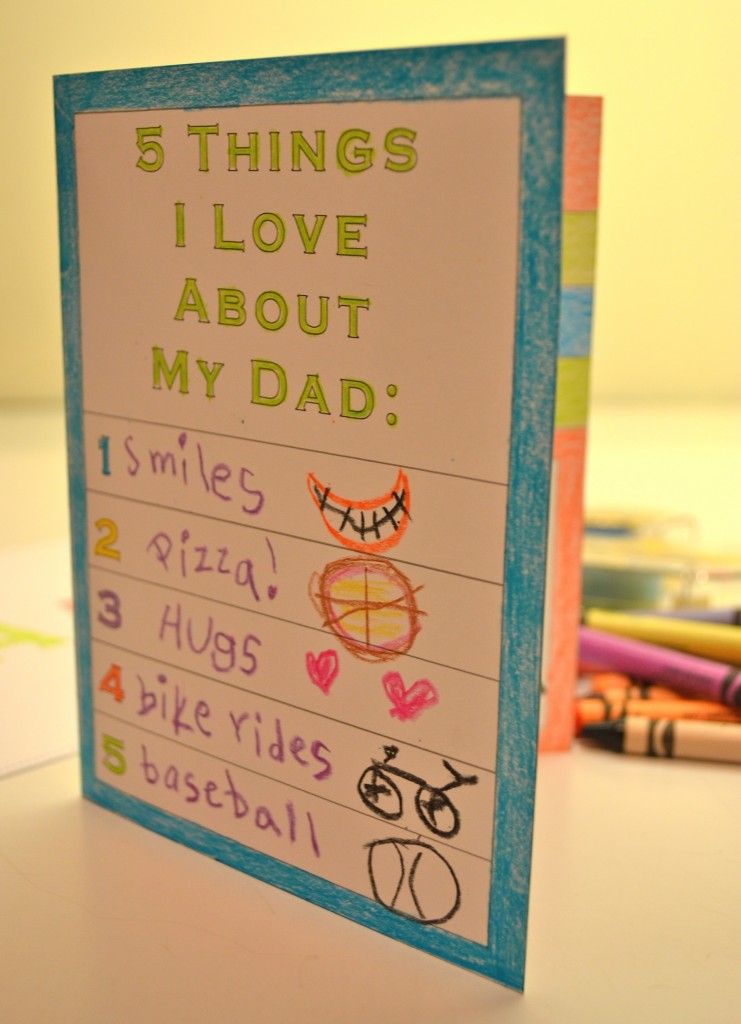 5 THINGS
I LOVE
ABOUT
MY DAD:
1 smiles
2 pizza!
3 HUgs
4 bike rides
5 baseball